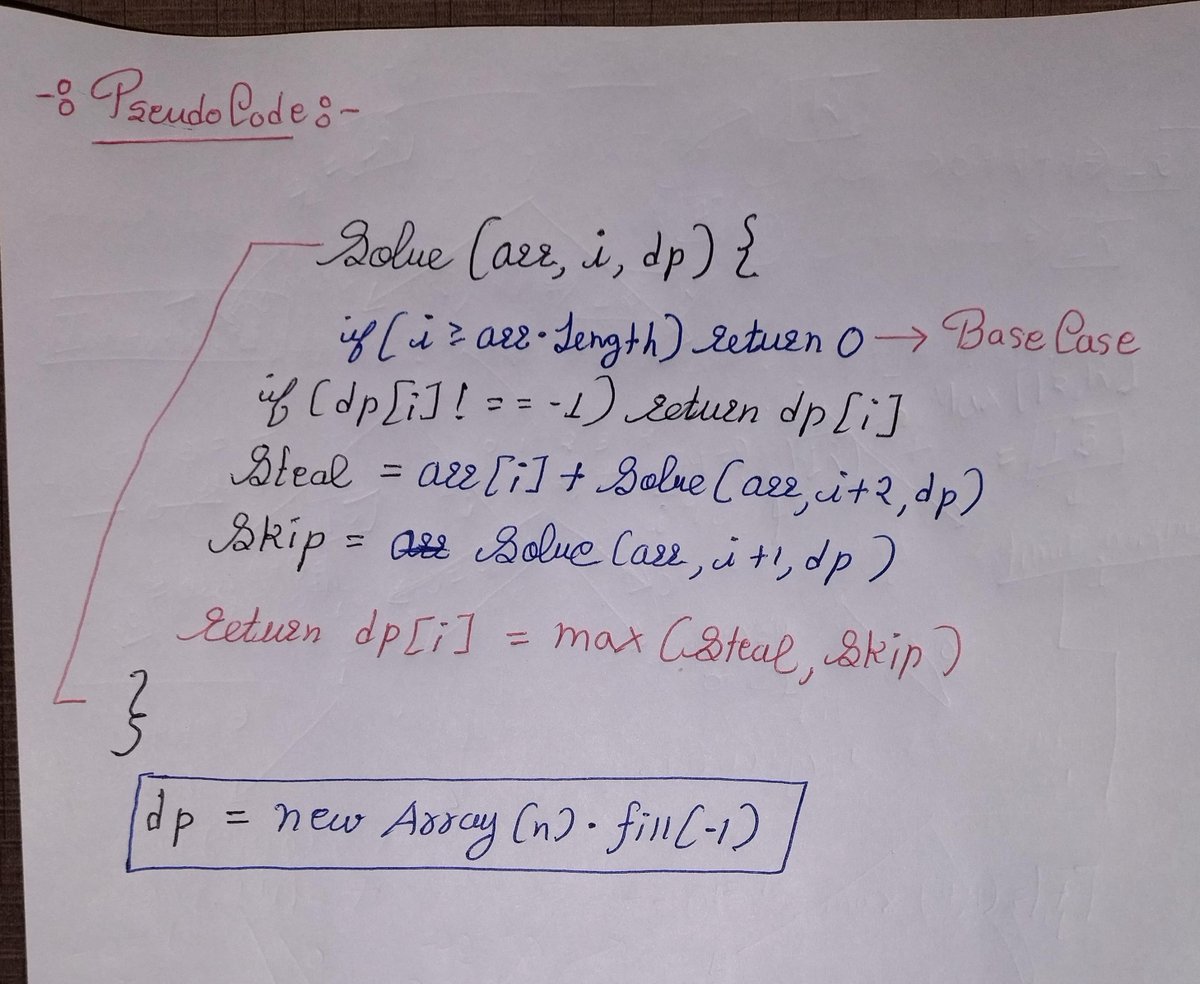 -: PseudoCode :-
Solve (arr, i, dp) {
if ( i ≥ arr.length) return 0 → Base Case
if (dp[i] !== -1) return dp[i]
Steal = arr[i] + Solve (arr, i+2, dp)
Skip = Solve (arr, i+1, dp)
return dp[i] = max (Steal, Skip)
}
dp = new Array (n).fill(-1)